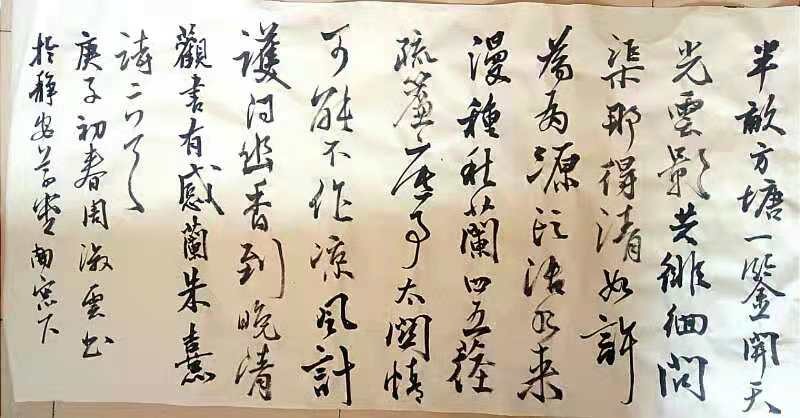 半畝方塘一鑒開天
光雲影共徘徊問
渠那得清如許
為有源頭活水来
漫種秋蘭四五莖
疏簾底事太關情
可能不作涼風計
護得幽香到晚清
觀書有感蘭朱熹
詩二首
庚子初春周淑雲書
於静安草堂南窓下